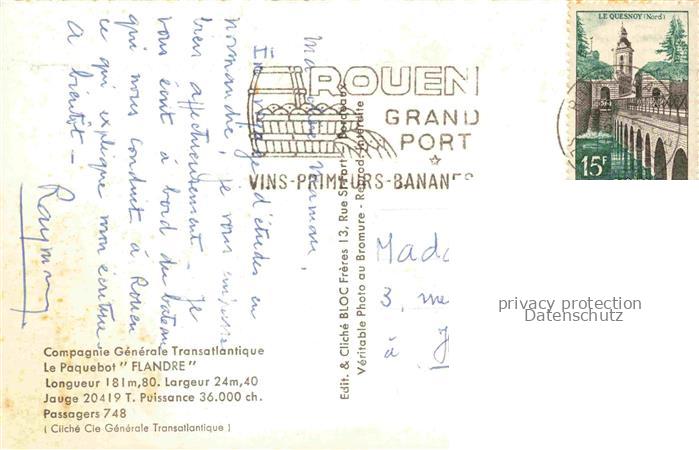 Ma chère Maman,
En voyage d'études en
Normandie, je vous embrasse
bien affectueusement - Je
vous écrit à bord du bateau
qui nous conduit à Rouen
ce qui explique mon écriture.
A bientôt -
Raymond
ROUEN
GRAND
PORT
VINS-PRIMEURS-BANANES
LE QUESNOY (Nord)
15F
Edit. & Cliché BLOC Frères 13, Rue St-Fort - Bordeaux
Véritable Photo au Bromure - Reprod. Interdite
Mada
3, rue
à
privacy protection
Datenschutz
Compagnie Générale Transatlantique
Le Paquebot "FLANDRE"
Longueur 181m,80. Largeur 24m,40
Jauge 20419 T. Puissance 36.000 ch.
Passagers 748
( Cliché Cie Générale Transatlantique )